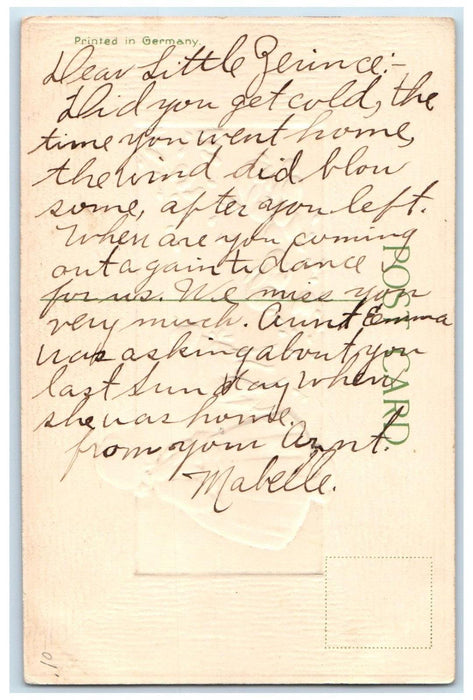 Printed in Germany.
Dear Little Zerince:-
Did you get cold, the
time you went home,
the wind did blow
some, after you left.
When are you coming
out again to dance
for us. We miss you
very much. Aunt Emma
was asking about you
last Sunday when
she was home.
from your Aunt.
Mabelle.
POST CARD
10